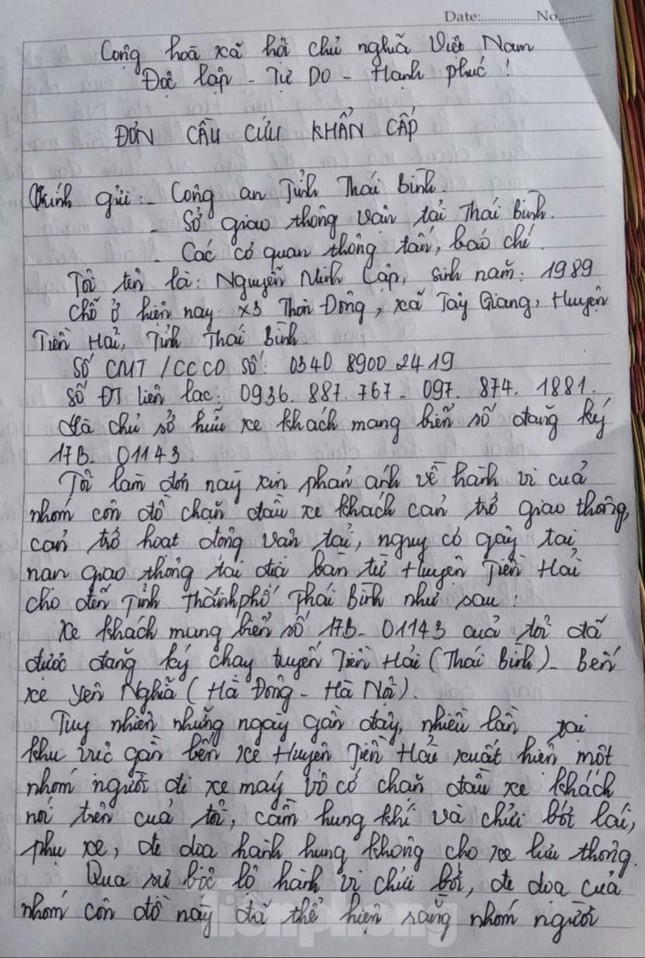 Date: No.
Cộng hoà xã hội chủ nghĩa Việt Nam
Độc lập - Tự Do - Hạnh phúc !
ĐƠN CẦU CỨU KHẨN CẤP
Kính gửi: - Công an Tỉnh Thái Bình.
- Sở giao thông vận tải Thái Bình.
- Các cơ quan thông tấn, báo chí.
Tôi tên là: Nguyễn Ninh Cập, sinh năm: 1989
Chỗ ở hiện nay: X3 Thôn Đông, xã Tây Giang, Huyện
Tiền Hải, Tỉnh Thái Bình.
Số CMT / CCCD Số: 0340 8900 2419
Số ĐT liên lạc: 0936. 887. 767 - 097. 874. 1881.
Là chủ sở hữu xe khách mang biển số đăng ký
17B. 01143.
Tôi làm đơn này xin phản ánh về hành vi của
nhóm côn đồ chặn đầu xe khách cản trở giao thông,
cản trở hoạt động vận tải, nguy cơ gây tai
nạn giao thông tại địa bàn từ Huyện Tiền Hải
cho đến Tỉnh Thành phố Thái Bình như sau:
Xe khách mang biển số 17B - 01143 của tôi đã
được đăng ký chạy tuyến Tiền Hải (Thái Bình) - Bến
xe Yên Nghĩa (Hà Đông - Hà Nội).
Tuy nhiên những ngày gần đây, nhiều lần tại
khu vực gần bến xe Huyện Tiền Hải xuất hiện một
nhóm người đi xe máy vô cớ chặn đầu xe khách
nói trên của tôi, cầm hung khí và chửi bới lái,
phụ xe, đe doạ hành hung không cho xe lưu thông.
Qua sự bộc lộ hành vi chửi bới, đe doạ của
nhóm côn đồ này đã thể hiện rằng nhóm người
tienphong